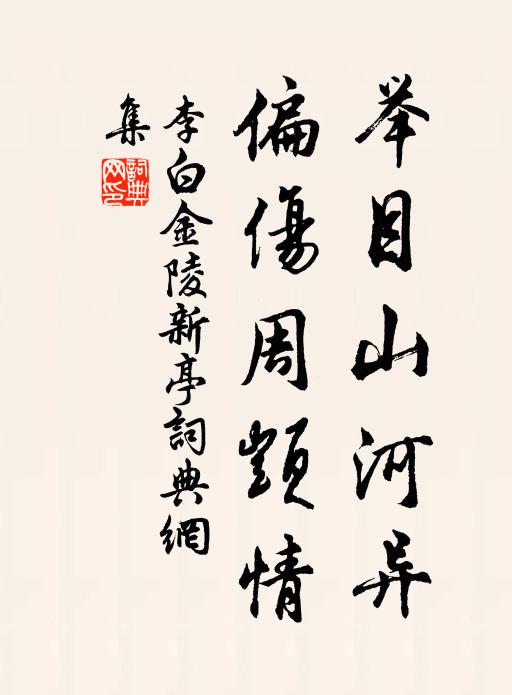 举目山河异
偏傷周顗情
李白金陵新亭詞典網
集
詞典
网印